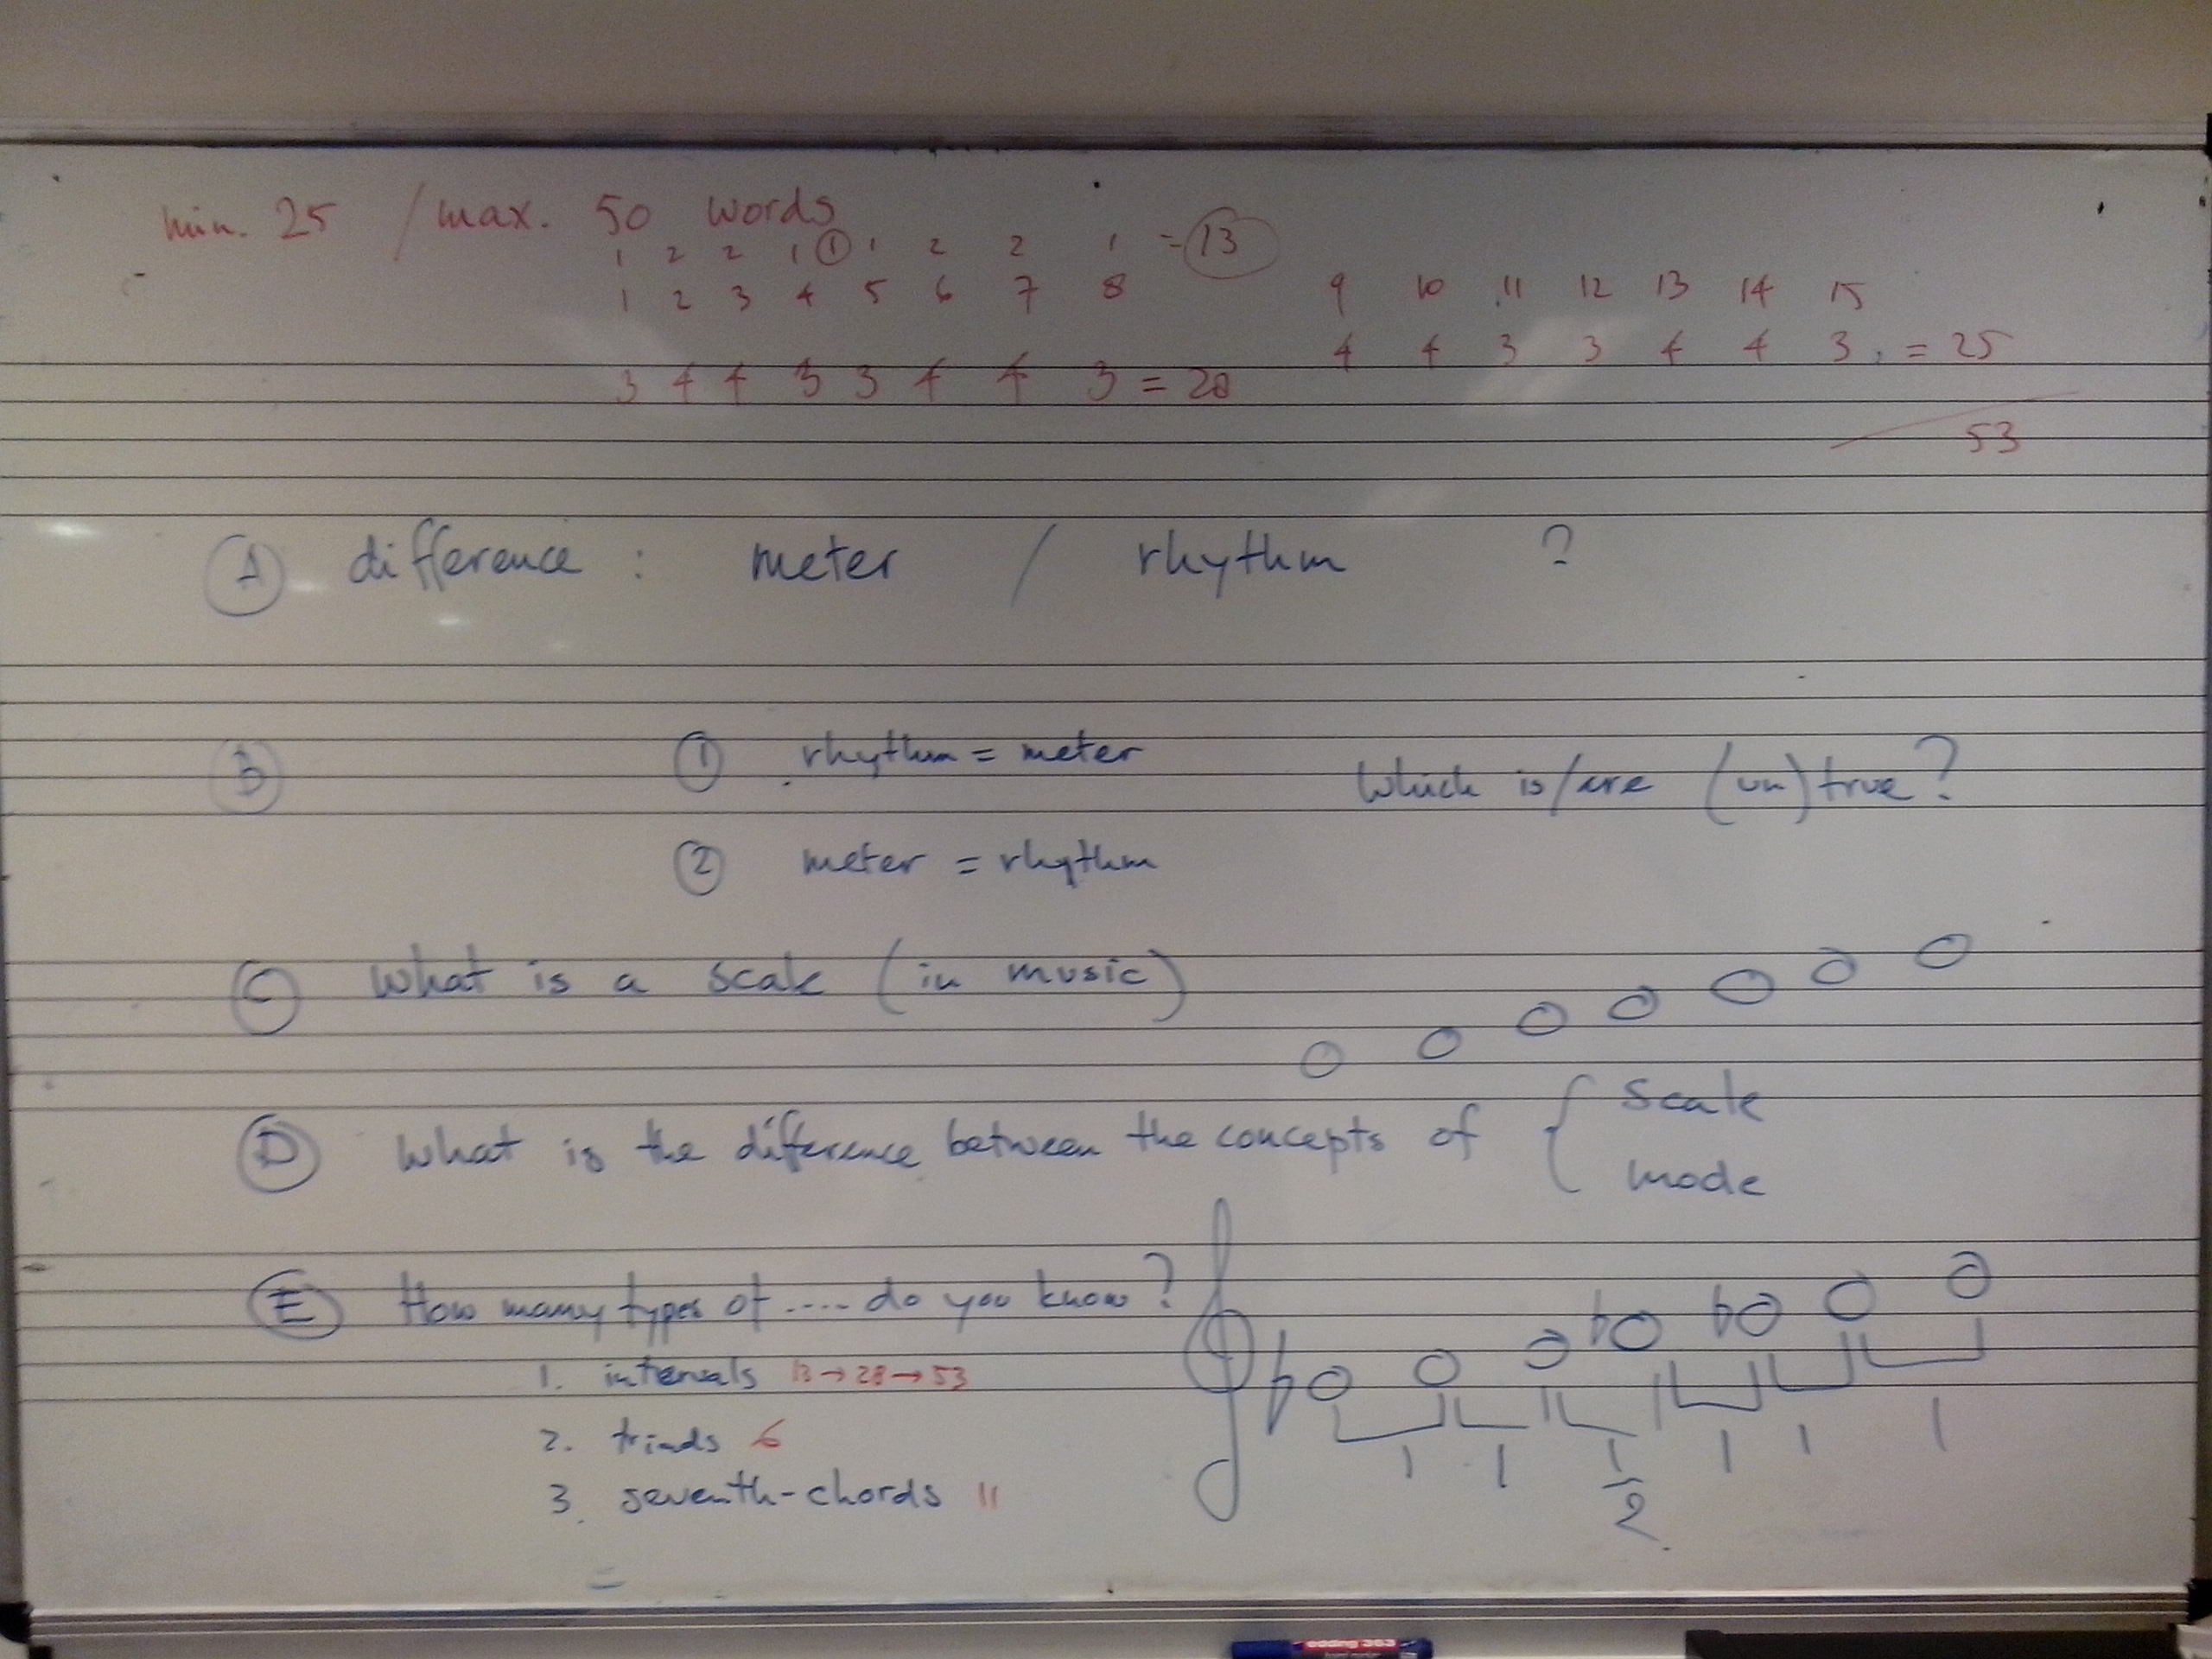 min. 25 / max. 50 words
1 2 2 1 ① 1 2 2 1 = 13
1 2 3 4 5 6 7 8 9 10 11 12 13 14 15
4 4 3 3 4 4 3 = 25
3 4 4 3 3 4 4 3 = 28
53
A difference : meter / rhythm ?
B ① rhythm = meter
Which is/are (un)true?
② meter = rhythm
C What is a scale (in music)
D What is the difference between the concepts of { scale
mode
E How many types of .... do you know?
1. intervals 13→28→53
2. triads 6
3. seventh-chords 11
♭ ♭ ♭
1 1 1/2 1 1 1
edding 363